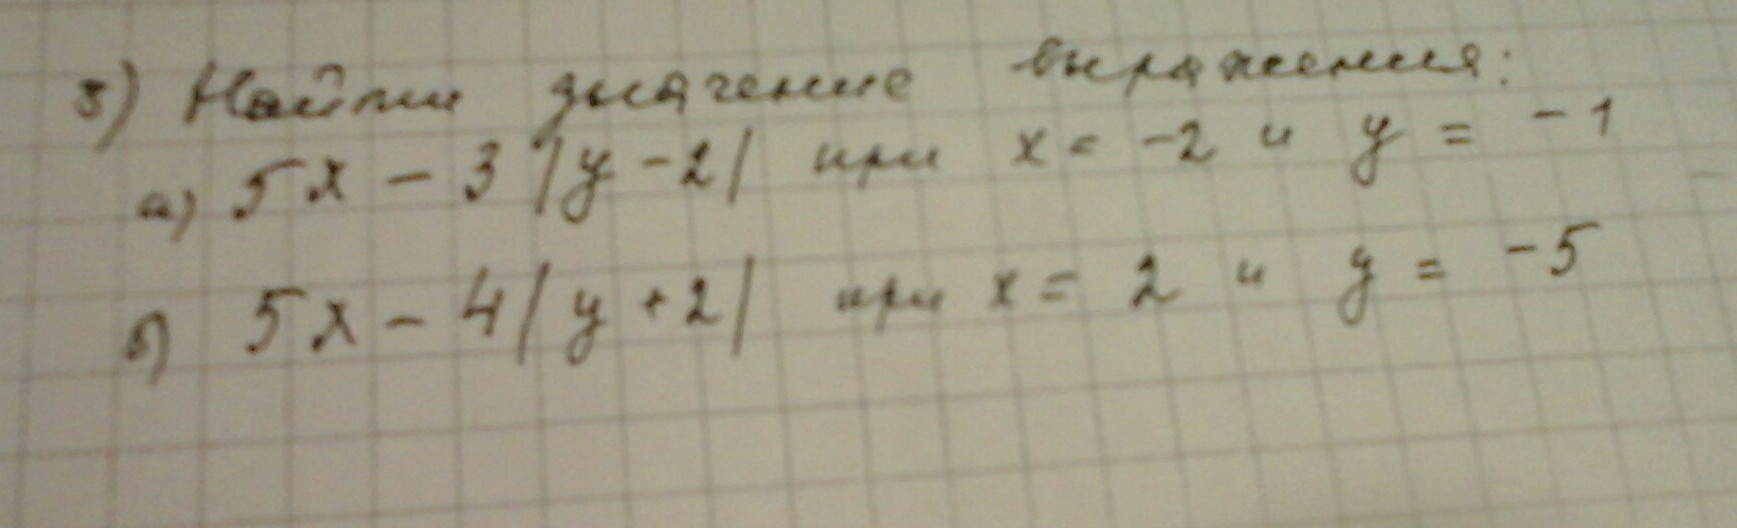 3) Найти значение выражения:
а) 5x - 3 |y - 2| при x = -2 и y = -1
б) 5x - 4 |y + 2| при x = 2 и y = -5